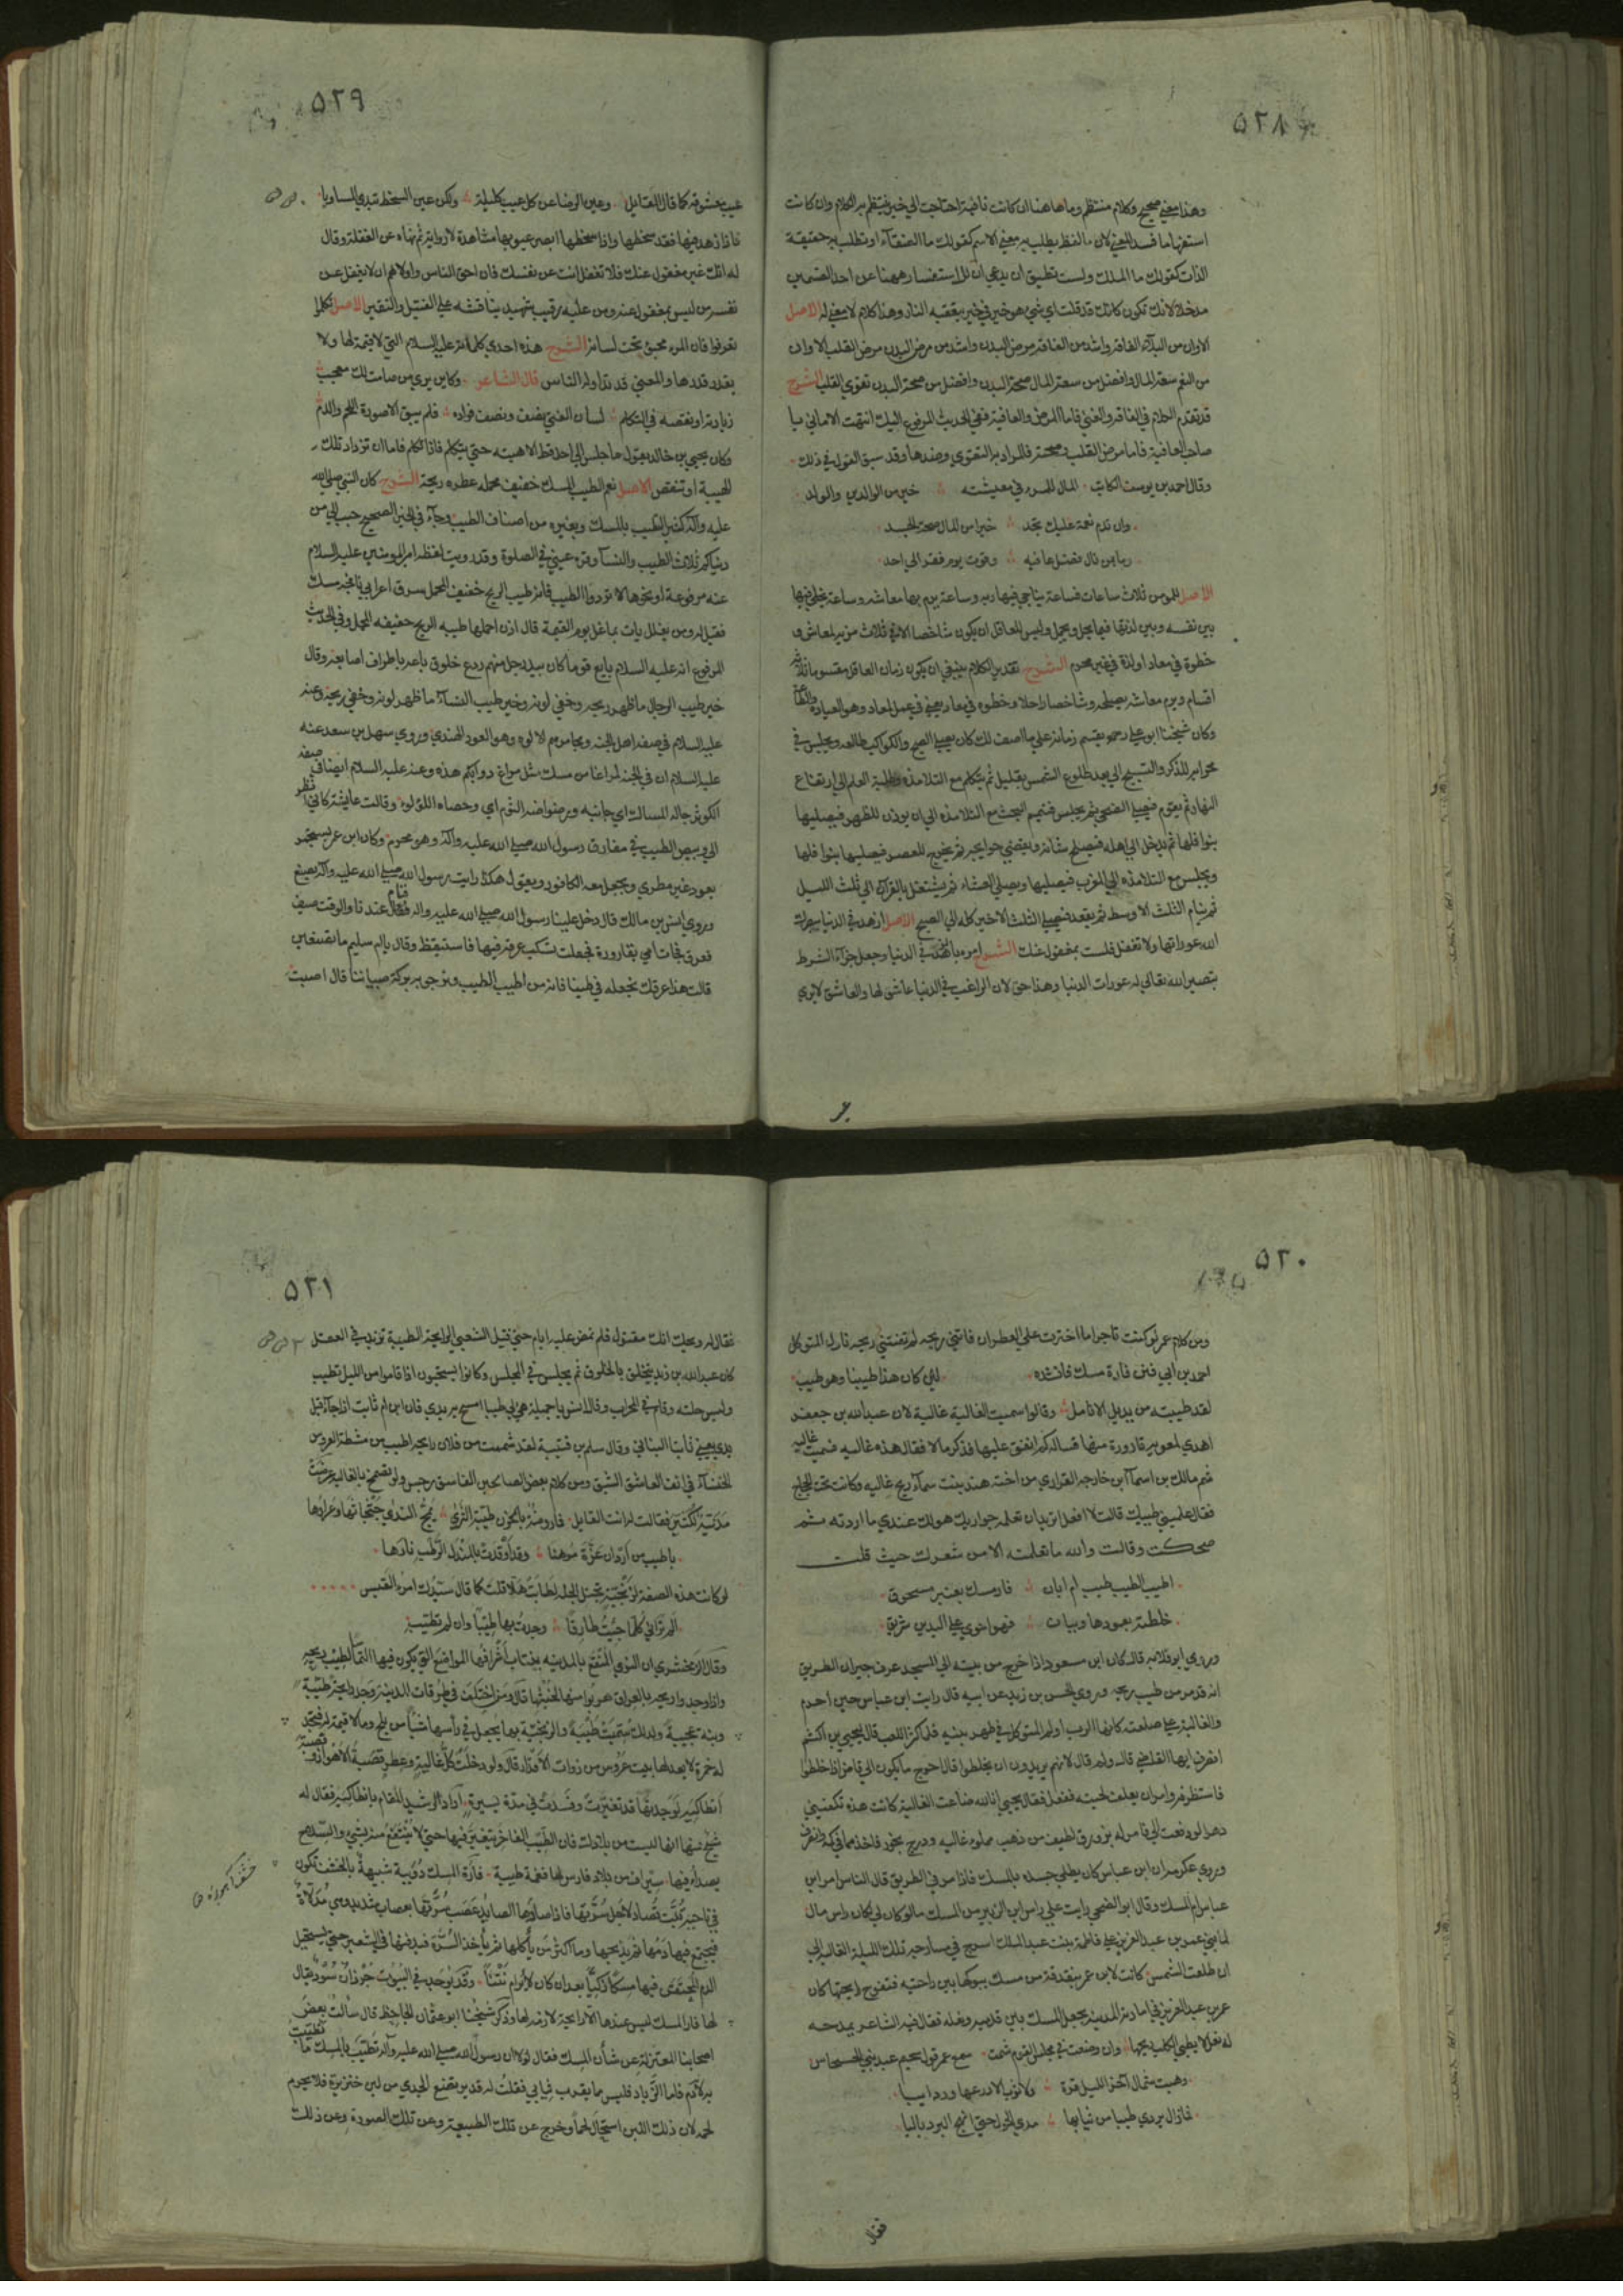 ٥٢٨
وهذا معنى صحيح وكلام منتظم وما هاهنا ان كانت نافية احتاجت الى خبر ينتظم به الكلام وان كانت
استفهاما فسد المعنى لان ما لفظ يطلب به معنى الاسم كقولك ما العنقاء او تطلب به حقيقة
الذات كقولك ما الملك ولست تطيق ان يدعي ان ما للاستفسار ههنا عن احد القسمين
مدخلا لانك تكون كانك قد قلت اي شيء هو خير في خير بعقبه النار وهذا كلام لا معنى له الاصل
الا وان من البلاء الفاقة واشد من الفاقة مرض البدن واشد من مرض البدن مرض القلب الا وان
من النعم سعة المال وافضل من سعة المال صحة البدن وافضل من صحة البدن تقوى القلب الشرح
قد تقدم الكلام في الفاقة والغنى فاما المرض والعافية ففي الحديث المرفوع اليك انتهت الاماني يا
صاحب العافية فاما مرض القلب وصحته فالمراد به التقوى وضدها وقد سبق القول في ذلك
وقال احمد بن يوسف الكاتب المال للمرء في معيشته خير من الوالدين والولد
وان تدم نعمة عليك تجد خيرا من المال صحة الجسد
وما بمن نال فضل عافية وقوت يوم فقر الى احد
الاصل للمومن ثلاث ساعات فساعة يناجي فيها ربه وساعة يرم بها معاشه وساعة يخلي فيها
بين نفسه وبين لذتها فيما يحل ويجمل وليس للعاقل ان يكون شاخصا الا في ثلاث مرمة لمعاش و
خطوة في معاد او لذة في غير محرم الشرح تقدير الكلام ينبغي ان يكون زمان العاقل مقسوما ثلاثة
اقسام ويرم معاشه يصلحه وشاخصا راحلا وخطوة في معاد يعني في عمل المعاد وهو العبادة والطاعة
وكان شيخنا ابو علي رحمه يقسم زمانه على ما اصف لك كان يصلي الصبح والكواكب طالعة ويجلس في
محرابه للذكر والتسبيح الى بعد طلوع الشمس بقليل ثم يتكلم مع التلامذة وطلبة العلم الى ارتفاع
النهار ثم يقوم فيصلي الضحى ثم يجلس فيتمم البحث مع التلامذة الى ان يوذن للظهر فيصليها
بنوافلها ثم يدخل الى اهله فيصلح شانه ويقضي حوايجه ثم يخرج للعصر فيصليها بنوافلها
ويجلس مع التلامذة الى المغرب فيصليها ويصلي العشاء ثم يشتغل بالقرآن الى ثلث الليل
ثم ينام الثلث الاوسط ثم يقعد فيصلي الثلث الاخير كله الى الصبح الاصل ازهد في الدنيا يبصرك
الله عوراتها ولا تغفل فلست بمغفول عنك الشرح امره بالزهد في الدنيا وجعل جزاء الشرط
تبصير الله تعالى له عورات الدنيا وهذا حق لان الراغب في الدنيا عاشق لها والعاشق لا يرى
٥٢٩
عيب معشوقه كما قال القايل وعين الرضا عن كل عيب كليلة ولكن عين السخط تبدي المساويا
فاذا زهد فيها فقد سخطها واذا سخطها ابصر عيوبها مشاهدة لا رواية ثم نهاه عن الغفلة وقال
له انك غير مغفول عنك فلا تغفل انت عن نفسك فان احق الناس واولاهم ان لا يغفل عن
نفسه من ليس بمغفول عنه ومن عليه رقيب شهيد يناقشه على الفتيل والنقير الاصل تكلموا
تعرفوا فان المرء مخبو تحت لسانه الشرح هذه احدى كلماته عليه السلام التي لا قيمة لها ولا
يقدر قدرها والمعنى قد تداوله الناس قال الشاعر وكاين ترى من صامت لك معجب
زيادته او نقصه في التكلم لسان الفتى نصف ونصف فؤاده فلم يبق الا صورة اللحم والدم
وكان يحيى بن خالد يقول ما جلس الي احد قط الا هبته حتى يتكلم فاذا تكلم فاما ان تزداد تلك
الهيبة او تنقص الاصل نعم الطيب المسك خفيف محمله عطره ريحه الشرح كان النبي صلى الله
عليه وآله كثير التطيب بالمسك وبغيره من اصناف الطيب وجاء في الخبر الصحيح حبب الي من
دنياكم ثلاث الطيب والنساء وقرة عيني في الصلوة وقد رويت لفظة امير المومنين عليه السلام
عنه مرفوعة او نحوها لا تردوا الطيب فانه طيب الريح خفيف المحمل سرق اعرابي نافجة مسك
فقيل له ومن يغلل يات بما غل يوم القيمة قال اذن احملها طيبة الريح خفيفة المحمل وفي الحديث
المرفوع انه عليه السلام بايع قوما كان بيد رجل منهم ردع خلوق بايعه باطراف اصابعه وقال
خير طيب الرجال ما ظهر ريحه وخفي لونه وخير طيب النساء ما ظهر لونه وخفي ريحه وعنه
عليه السلام في صفة اهل الجنة ومجامرهم الالوة وهو العود الهندي وروى سهل بن سعد عنه
عليه السلام ان في الجنة لمراغا من مسك مثل مراغ دوابكم هذه وعنه عليه السلام ايضا في صفة
الكوثر جاله المسك اي جانبه ورضراضه التوم اي وحصاه اللؤلؤ وقالت عايشة كاني انظر
الى وبيص الطيب في مفارق رسول الله صلى الله عليه وآله وهو محرم وكان ابن عمر يستجمر
بعود غير مطرى ويجعل معه الكافور ويقول هكذا رايت رسول الله صلى الله عليه وآله يصنع
وروى انس بن مالك قال دخل علينا رسول الله صلى الله عليه واله فقال عندنا والوقت صيف
فعرق فجات امي بقارورة فجعلت تسكب عرقه فيها فاستيقظ وقال يا ام سليم ما تصنعين
قالت هذا عرقك نجعله في طيبنا فانه من اطيب الطيب ونرجو به بركة صبياننا قال اصبت
٥٣٠
ومن كلام عمر لو كنت تاجرا ما اخترت على العطر ان فاتني ربحه لم تفتني ريحه ناول المتوكل
احمد بن ابي فنن فارة مسك فانشده لئن كان هذا طيبنا وهو طيب
لقد طيبته من يديك الانامل وقالوا سميت الغالية غالية لان عبد الله بن جعفر
اهدى لمعوية قارورة منها فساله كم انفق عليها فذكر مالا فقال هذه غالية فسميت غالية
شم مالك بن اسماء ابن خارجة الفزاري من اخته هند بنت اسماء ريح غالية وكانت تحت الحجاج
فقال علميني طيبك قالت لا افعل اتريد ان تعلمه جواريك هو لك عندي ما اردته ثم
ضحكت وقالت والله ما تعلمته الا من شعرك حيث قلت
اطيب الطيب طيب ام ابان فار مسك بعنبر مسحوق
خلطته بعودها وببان فهو احوى على اليدين شريق
وروى ابو قلابة قال كان ابن مسعود اذا خرج من بيته الى المسجد عرف جيران الطريق
انه قد مر من طيب ريحه وروى الحسن بن زيد عن ابيه قال رايت ابن عباس حين احرم
والغالية على صلعته كانها الرب اولم المتوكل في طهر بنيه فلما كثر اللعب قال ليحيى بن اكثم
انصرف ايها القاضي قال ولم قال لانهم يريدون ان يخلطوا قال احوج ما يكون الى قاض اذا خلطوا
فاستظرفه وامر ان يغلف لحيته ففعل فقال يحيى انا لله ضاعت الغالية كانت هذه تكفيني
دهرا لو دفعت الي فامر له بزورق لطيف من ذهب مملوء غالية ودرج بخور فاخذهما في كمه وانصرف
وروى عكرمة ان ابن عباس كان يطلي جسده بالمسك فاذا مر في الطريق قال الناس امر ابن
عباس ام المسك وقال ابو الضحى رايت على راس ابن الزبير من المسك ما لو كان لي لكان راس مال
لما بنى عمر بن عبد العزيز على فاطمة بنت عبد الملك اسرج في مسارجه تلك الليلة الغالية الى
ان طلعت الشمس كانت لابن عمر بندقة من مسك يبوكها بين راحتيه فتفوح رايحتها كان
عمر بن عبد العزيز في امارته المدينة يجعل المسك بين قدميه ونعله فقال فيه الشاعر يمدحه
له نعل لا يطبي الكلب ريحها وان وضعت في مجلس القوم شمت سمع عمر قول سحيم عبد بني الحسحاس
وهبت شمال آخر الليل قرة ولا ثوب الا درعها وردائيا
فما زال بردي طيبا من ثيابها مدى الحول حتى انهج البرد باليا
فقال
٥٣١
فقال له ويحك انك مقتول فلم تمض عليه ايام حتى قتل الشعبي الرايحة الطيبة تزيد في العقل
كان عبد الله بن زيد يتخلق بالخلوق ثم يجلس في المجلس وكانوا يستحبون اذا قاموا من الليل تطيب
ولبس حلته وقام في المحراب وقال انس يا جميلة هيي لي طيبا امسح به يدي فان ابن ام ثابت اذا جاء قبل
يدي يعني ثابتا البناني وقال سلم بن قتيبة لقد شممت من فلان رايحة اطيب من مشطة العروس
الحسناء في انف العاشق الشبق ومن كلام بعض الصالحين الفاسق رجس ولو تضمخ بالغالية عرضت
مدنية لكثير فقالت له انت القايل فما روضة بالحزن طيبة الثرى يمج الندى جثجاثها وعرارها
باطيب من اردان عزة موهنا وقد اوقدت بالمندل الرطب نارها
لو كانت هذه الصفة لزنجية تجتلي الحلة لطابت هلا قلت كما قال سيدك امرء القيس
الم ترياني كلما جئت طارقا وجدت بها طيبا وان لم تطيب
وقال الزمخشري ان النوى المنقع بالمدينة ينتاب اشرافها المواضع التي يكون فيها التماسا لطيب ريحه
واذا وجدوا ريحه بالعراق هربوا منها لخبثها قال ومن اختلف في طرقات المدينة وجد رايحة طيبة
وبنة عجيبة ولذلك سميت طيبة والزنجية بها يجعل في رأسها شيأ من بلح وما لا قيمة له فتجد
له خمرة لا يعدلها بيت عروس من ذوات الاقدار قال ولو دخلت كل غالية وعطر قصبة الاهواز وقصبة
انطاكية لوجدتها قد تغيرت وفسدت في مدة يسيرة اراد الرشيد المقام بانطاكية فقال له
شيخ منها انها ليست من بلادك فان الطيب الفاخر يتغير فيها حتى لا ينتفع منه بشيء والسلاح
يصدأ فيها سيراف من بلاد فارس لها فغمة طيبة فارة المسك دويبة شبيهة بالخشف تكون
في ناحية تبت تصاد لاجل سرتها فاذا صادها الصايد عصب سرتها بعصاب شديد وهي مدلاة
فيجتمع فيها دمها ثم يذبحها وما اكثر من ياكلها ثم يأخذ السرة فيدفنها في الشعير حتى يستحيل
الدم المحتقن فيها مسكا ذكيا بعد ان كان لا يرام نتنا وقد يوجد في البيوت جرذان سود يقال
لها فار المسك ليس عندها الا رايحة لازمة لها وذكر شيخنا ابو عثمان الجاحظ قال سألت بعض
اصحابنا المعتزلة عن شأن المسك فقال لولا ان رسول الله صلى الله عليه وآله تطيب بالمسك ما تطيبت
به لانه دم فاما الزباد فليس مما يقرب ثيابي فقلت له قد يرتضع الجدي من لبن خنزيرة فلا يحرم
لحمه لان ذلك اللبن استحال لحما وخرج عن تلك الطبيعة وعن تلك الصورة وعن ذلك